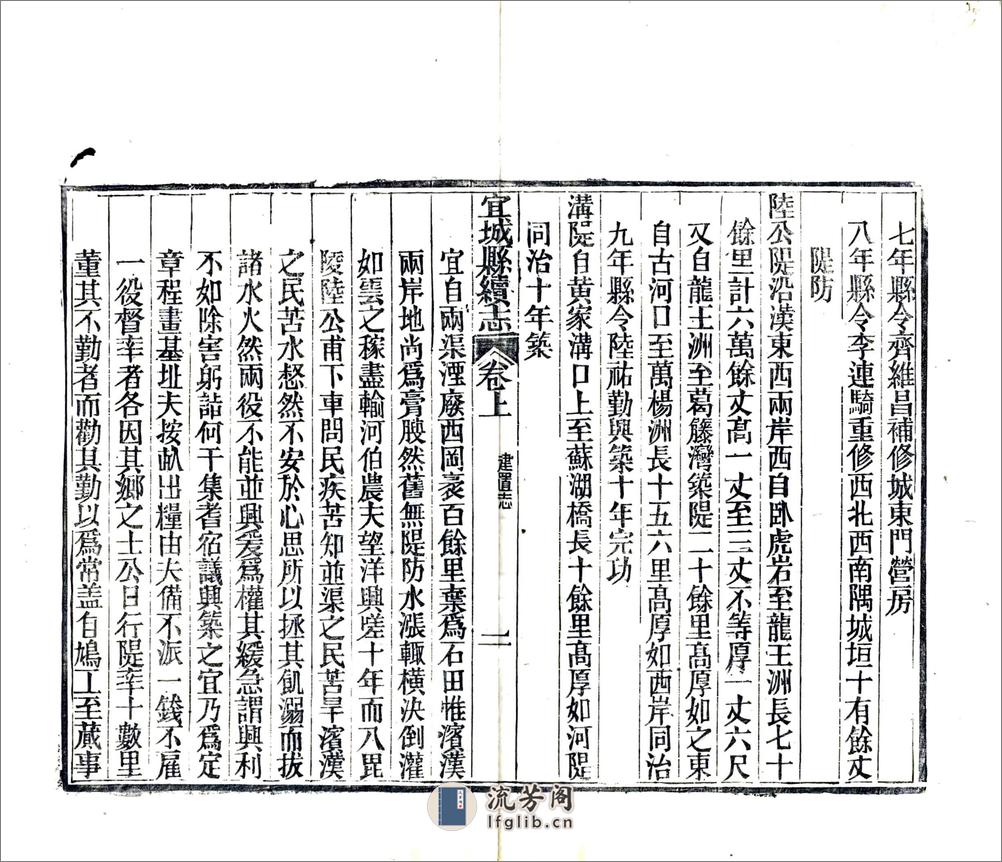 七年縣令齊維昌補修城東門營房
八年縣令李連騎重修西北西南隅城垣十有餘丈
隄防
陸公隄沿漢東西兩岸西自臥虎岩至龍王洲長七十
餘里計六萬餘丈高一丈至三丈不等厚一丈六尺
又自龍王洲至葛藤灣築隄二十餘里高厚如之東
自古河口至萬楊洲長十五六里高厚如西岸同治
九年縣令陸祐勤興築十年完功
溝隄自黃家溝口上至蘇湖橋長十餘里高厚如河隄
同治十年築
宜城縣續志 卷上 建置志 二
宜自兩渠湮廢西岡袤百餘里棄爲石田惟濱漢
兩岸地尚爲膏腴然舊無隄防水漲輒橫決倒灌
如雲之稼盡輸河伯農夫望洋興嗟十年而八毘
陵陸公甫下車問民疾苦知並渠之民苦旱濱漢
之民苦水惄然不安於心思所以拯其飢溺而拔
諸水火然兩役不能並興爰爲權其緩急謂興利
不如除害躬詣何干集耆宿議興築之宜乃爲定
章程畫基址夫按畝出糧由夫備不派一錢不雇
一役督率者各因其鄉之士公日行隄率十數里
董其不勤者而勸其勤以爲常盖自鳩工至蕆事
流芳阁
lfglib.cn